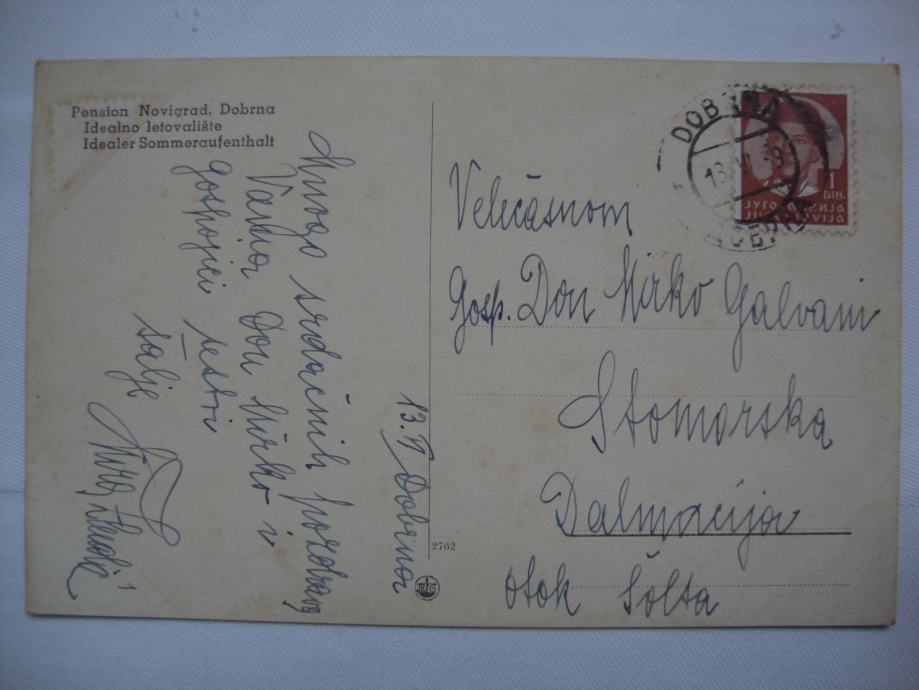 Pension Novigrad, Dobrna
Idealno letovalište
Idealer Sommeraufenthalt
Mnogo srdačnih pozdrava
Vama Don Mirko i
gospojici sestri
šalje
13. V Dobrna
2762
DOBRNA
1
DIN.
ЈУГОСЛАВИЈА
JUGOSLAVIJA
Velečasnom
Gosp. Don Mirko Galvani
Stomorska
Dalmacija
otok Šolta